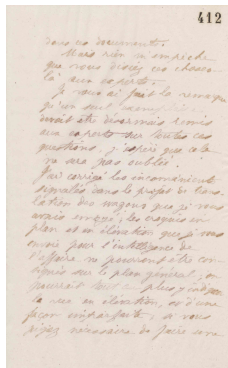 412
dans ces documents.
Mais rien n'empêche
que vous disiez ces choses
là aux experts.
Je vous ai fait la remarque
qu'un seul
devait être désormais remis
aux experts sur toutes ces
questions, j'espère que cela
ne sera pas oublié.
J'ai corrigé les inconvénients
signalés dans le projet de trans
lation des wagons que je vous
avais envoyé; les croquis en
plan et en élévation que je vous
envoie pour l'intelligence de
l'affaire ne pourront être con
signés sur le plan général, on
pourrait tout plus y indiquer
la vue en élévation, ou d'une
façon imparfaite, si vous
jugez nécessaire de faire une